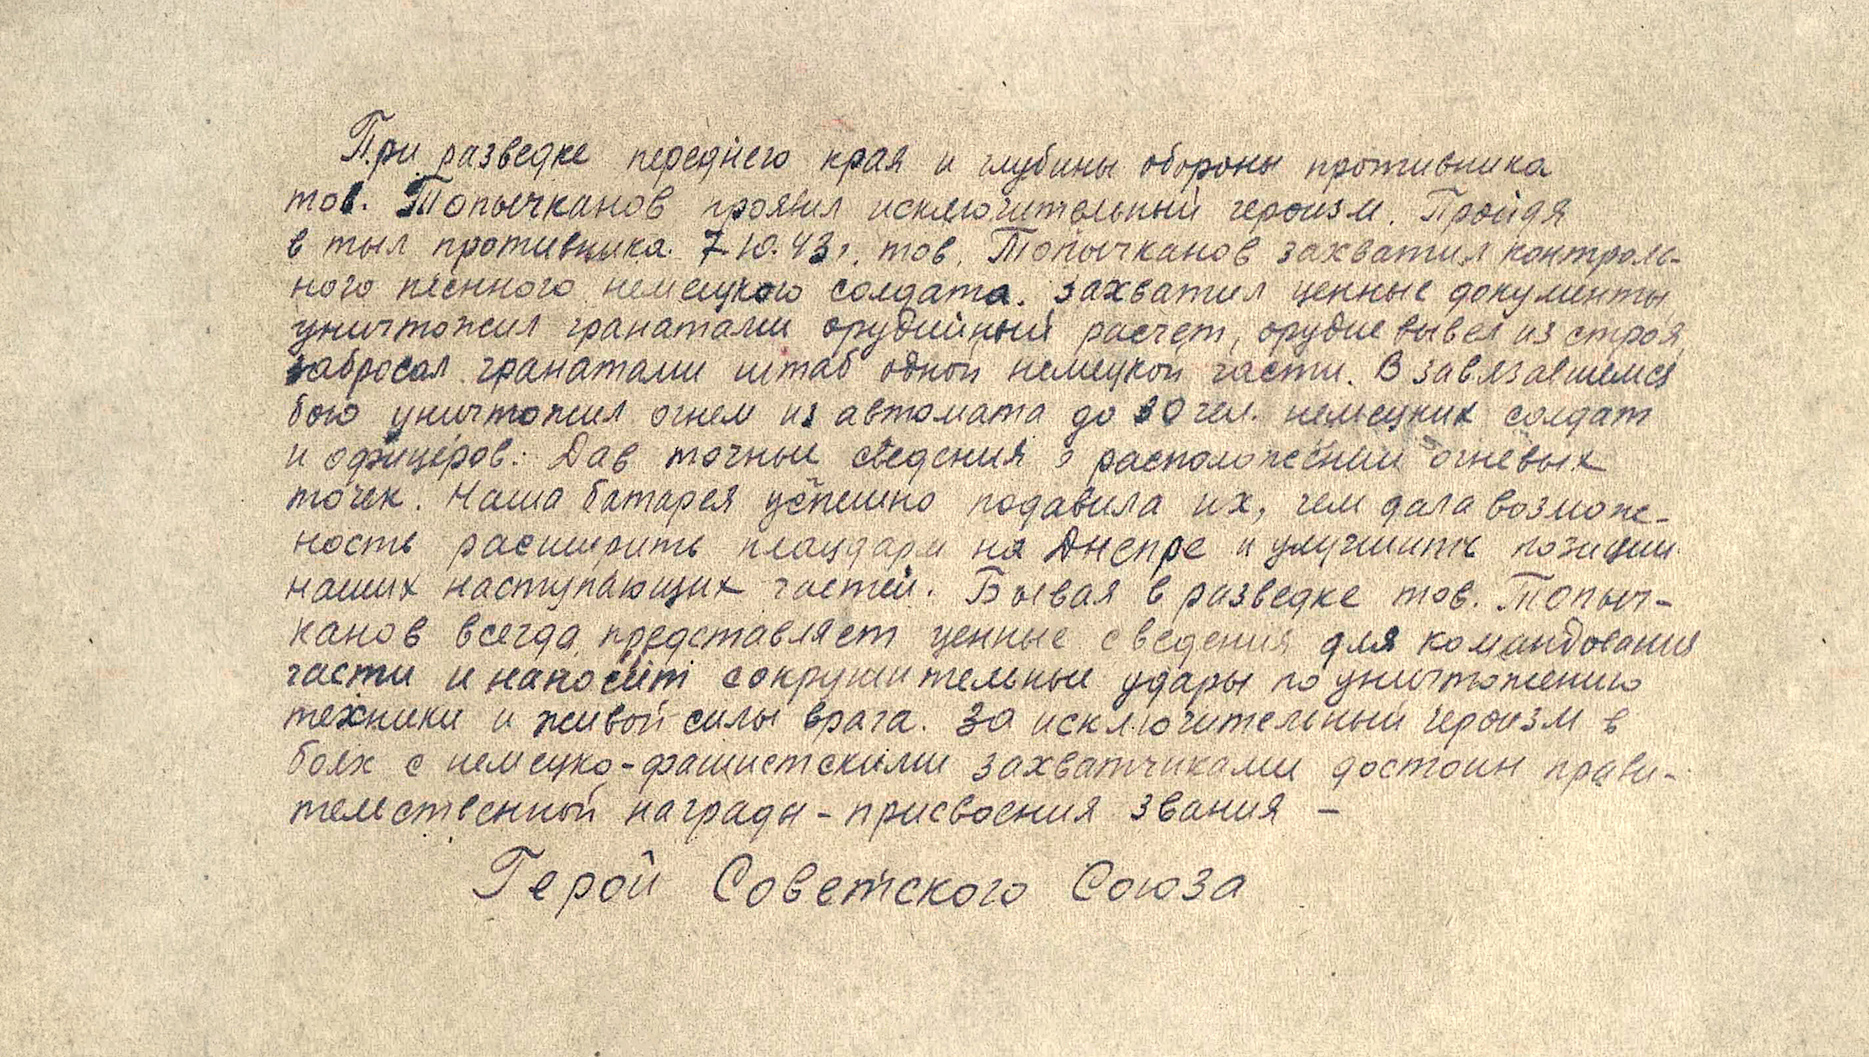 При разведке переднего края и глубины обороны противника
тов. Топычканов проявил исключительный героизм. Пройдя
в тыл противника 7.10.43г. тов. Топычканов захватил контроль-
ного пленного немецкого солдата. захватил ценные документы,
уничтожил гранатами орудийный расчет, орудие вывел из строя,
забросал гранатами штаб одной немецкой части. В завязавшемся
бою уничтожил огнем из автомата до 30 чел. немецких солдат
и офицеров. Дав точные сведения о расположении огневых
точек. Наша батарея успешно подавила их, чем дала возмож-
ность расширить плацдарм на Днепре и улучшить позиции
наших наступающих частей. Бывая в разведке тов. Топыч-
канов всегда представляет ценные сведения для командования
части и наносит сокрушительные удары по уничтожению
техники и живой силы врага. За исключительный героизм в
боях с немецко-фашистскими захватчиками достоин прави-
тельственной награды - присвоения звания -
Герой Советского Союза